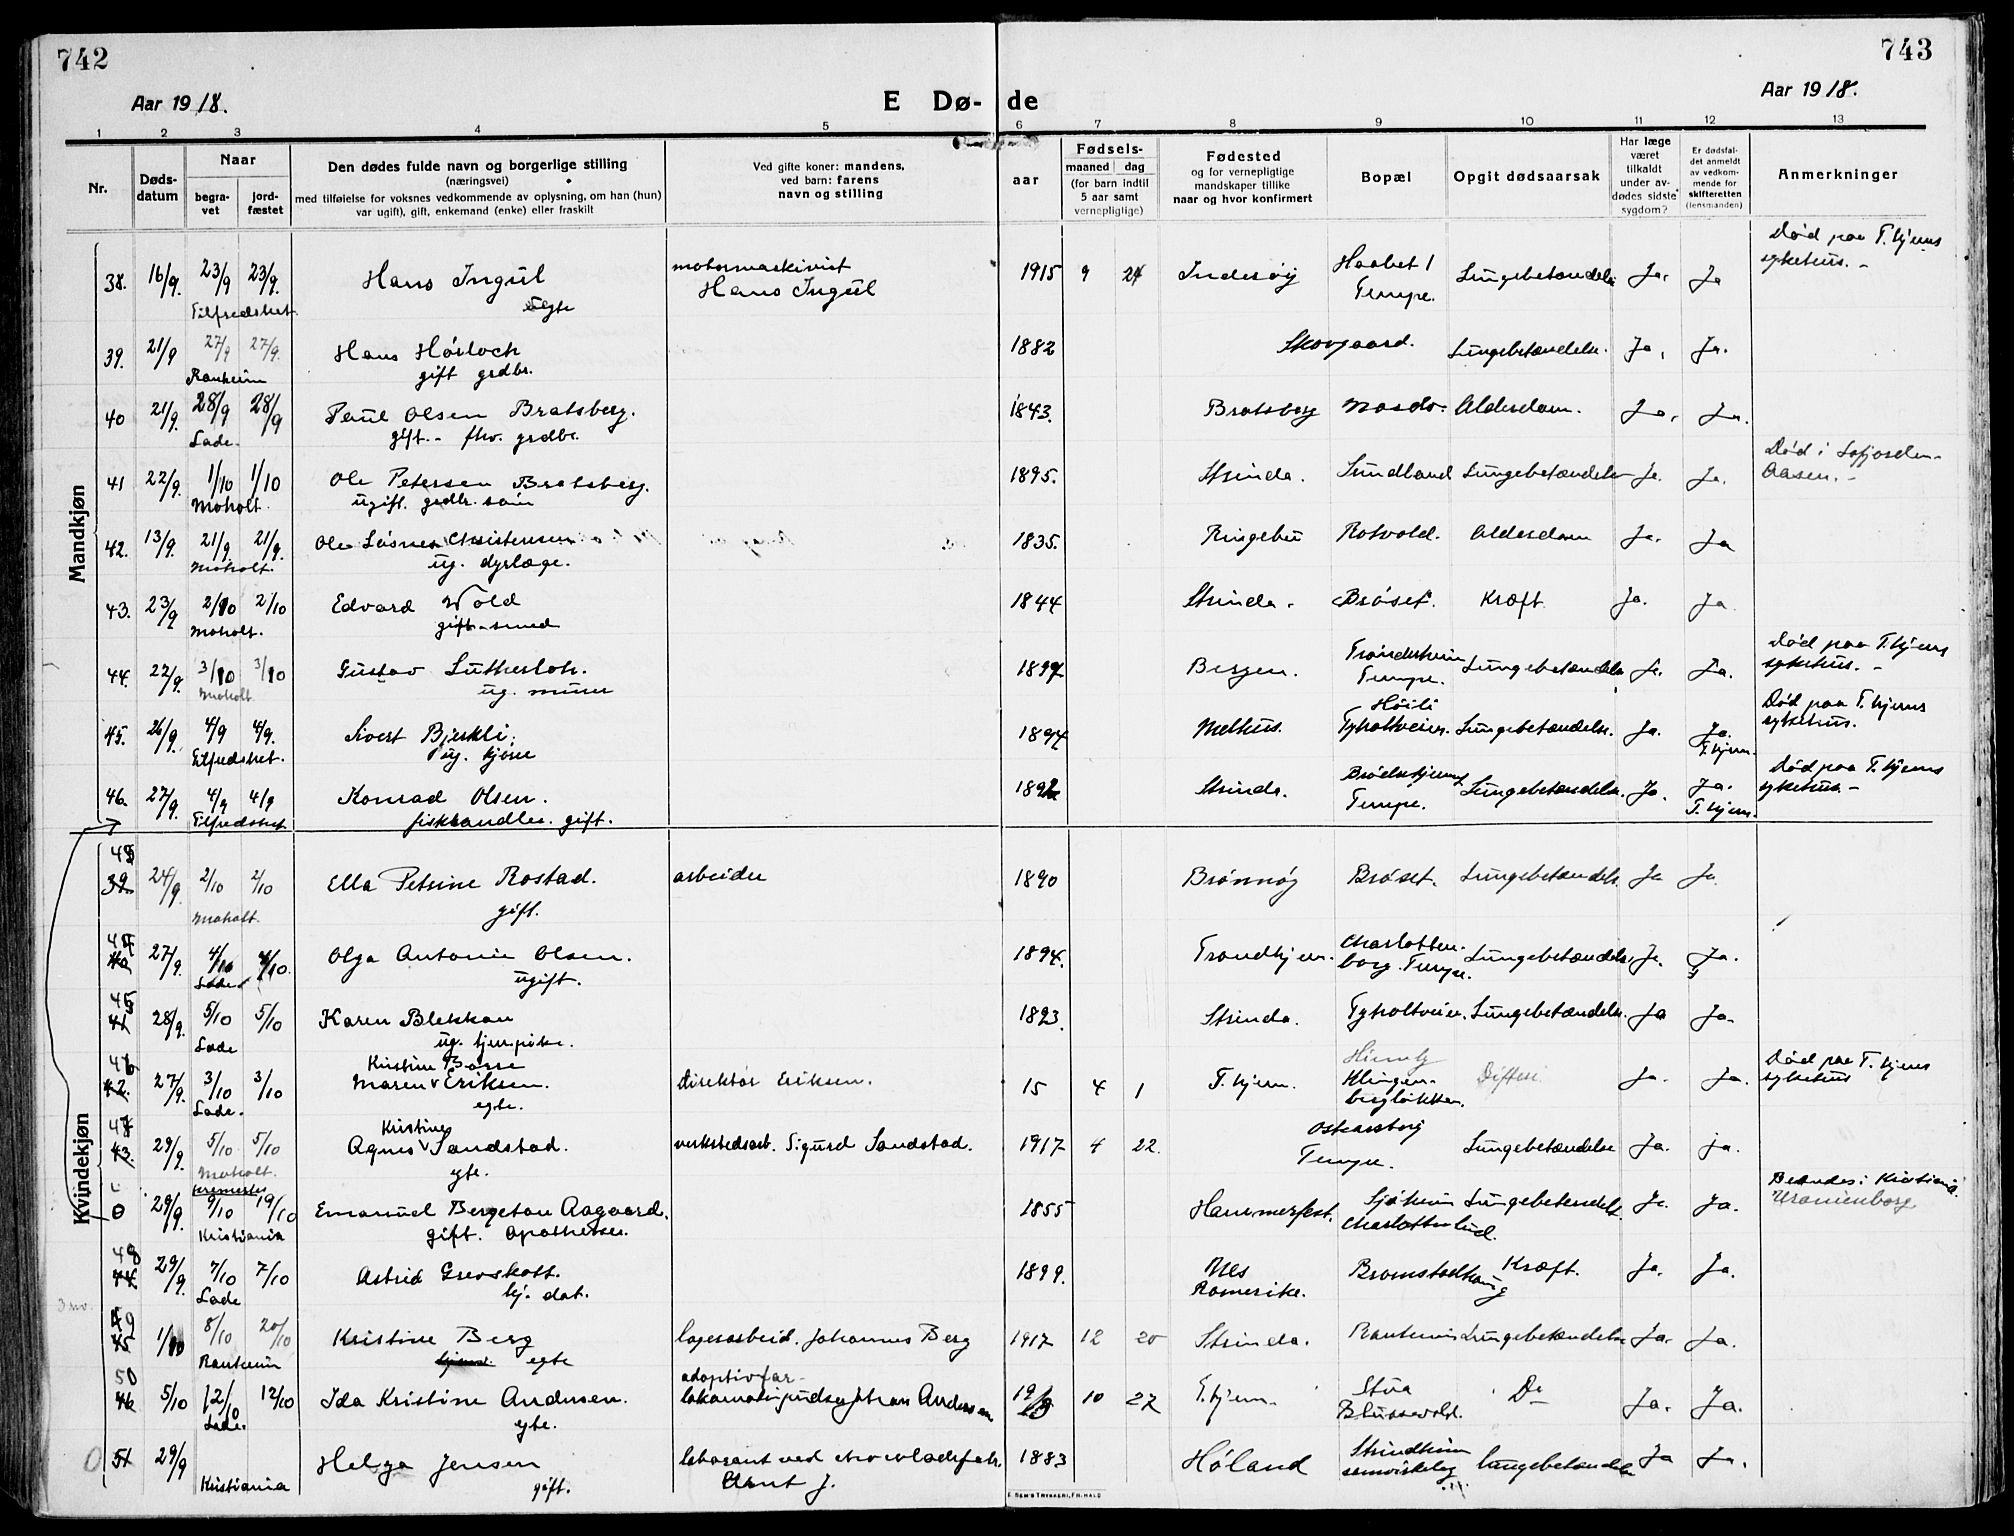 742
743
Aar 1918.
E Dø- de
Aar 1918.
1 2 3 4 5 6 7 8 9 10 11 12 13
Nr.
Døds-
datum
Naar
begra-
vet
jord-
fæstet
Den dødes fulde navn og borgerlige stilling
(næringsvei)
med tilføielse for voksnes vedkommende av oplysning, om han (hun)
var ugift), gift, enkemand (enke) eller fraskilt
Ved gifte koner: mandens,
ved barn: farens
navn og stilling
Fødsels-
aar
maaned dag
(for barn indtil
5 aar samt
vernepligtige)
Fødested
og for vernepligtige
mandskaper tillike
naar og hvor konfirmert
Bopæl
Opgit dødsaarsak
Har læge
været
tilkaldt
under av-
dødes sidste
sygdom?
Er dødsfal-
det anmeldt
av vedkom-
mende for
skifteretten
(lensmanden)
Anmerkninger
Mandkjøn
38. 16/9. 23/9 23/9. Hans Ingul motormaskinist 1915 9 24 Inderøy Haabet 1 Lungebetændelse Ja. Ja Død paa T.hjems
Tilfredshet. ægte Hans Ingul Tempe. sykehus. -
39. 21/9 27/9 27/9. Hans Hørloch 1882 Skovgaard. Lungebetændelse. Ja. Ja.
Ranheim gift grdbr.
40 21/9. 28/9 28/9 Paul Olsen Bratsberg. 1843. Bratsberg Alderdom. Ja. Ja.
Lade. gift. - fhv. grdbr.
41 22/9. 1/10 1/10 Ole Petersen Bratsberg. 1895. Strinda. Sundland Lungebetændelse Ja. Ja. Død i
Moholt. ugift. grdbr. søn Aasen. -
42. 13/9. 21/9. 21/9. Ole Christensen 1835. Ringebu Rotvold. Alderdom Ja. Ja
Moholt. ug. dyrlæge.
43. 23/9 2/10 2/10 Edvard Wold 1844 Strinda. Brøset. Kræft Ja. Ja
Moholt. gift - smed
44. 22/9. 3/10 3/10 Gustav Lutherloh. 1897 Bergen. Trondheim Lungebetændelse Ja. Ja. Død paa T.hjems
Moholt ug. murer Tempe. sykehus. -
45. 26/9. 4/9 4/9. Sivert Bjerkli. 1894 Melhus. Høili Lungebetændelse. Ja. Ja. Død paa T.hjems
Tilfredshet. ug. kjører Tyholtveien. T.hjem. sykehus.
46. 27/9. 4/9 4/9 Konrad Olsen. 1892 Strinda. Lungebetændelse. Ja. Ja. Død paa T.hjems
Tilfredshet fiskhandler. gift. Tempe. T.hjem. sykehus. -
Kvindekjøn
43
39 24/9. 2/10 2/10 Ella Petrine Rostad. arbeider 1890 Brønnøy Brøset. Lungebetændelse Ja Ja.
Moholt. gift.
44
40 27/9. 4/10 4/10. Olga Antonie Olsen. 1894. Trondhjem. Charlotten- Lungebetændelse. Ja. Ja.
Lade ugift. borg. Tempe.
45
41 28/9. 5/10 5/10 Karen Blekkan 1893. Strinda. Tyholtveien. Lungebetændelse. Ja Ja.
Lade ug. tjen.pike.
46 Kristine Børre
42. 27/9. 3/10 3/10 Maren Eriksen. direktør Eriksen. 15 4 1 T.hjem. Klingen- Difteri Ja. Ja. Død paa T.hjems
Lade. egte. bergløkken. sykehus
47 Kristine
43. 29/9. 5/10 5/10 Agnes Sandstad. verkstedsarb. Sigurd Sandstad. 1917 4 22. Oskarsborg Lungebetændelse Ja. ja.
Moholt. egte. Tempe.
kremeres
0 29/9. 9/10 19/10 Emanuel Bergeton Aagaard. 1855 Hammerfest. Sjøheim Lungebetændelse. Ja. Ja. Brændes i Kristiania.
Kristiania gift. Apotheker. Charlottenlund. Uranienborg
48
44. 29/9. 7/10 7/10 Astrid Grevskott. 1899. Nes Bromstadhaug Kræft. Ja. Ja.
Lade kj. dat. Romerike.
3 nr.
49
45 1/10 8/10 20/10 Kristine Berg lagerarbeid. Johannes Berg 1917 12 20 Strinda. Ranheim Lungebetændelse Ja. Ja.
Ranheim egte
50 adoptivfar-
46 5/10 12/10 12/10 Ida Kristine Andersen. Johan Andersen 10 27 T.hjem. Stua Do Ja. Ja.
Lade. egte.
0 51 29/9 Helga Jensen laborant ved chocoladefabr. 1883 Høland Strindheim Lungebetændelse Ja Ja.
Kristiania gift. Arnt J. samvirkelag
E. SEM'S TRYKKERI, FR.HALD